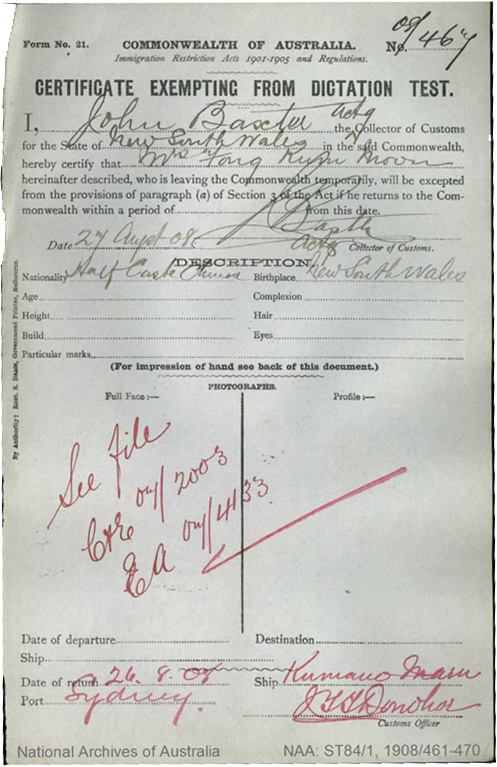 Form No. 21. COMMONWEALTH OF AUSTRALIA. No. 08/467
Immigration Restriction Acts 1901-1905 and Regulations.
CERTIFICATE EXEMPTING FROM DICTATION TEST.
I, John Baxter actg the Collector of Customs
for the State of New South Wales in the said Commonwealth,
hereby certify that Mrs Fong Kum Moon
hereinafter described, who is leaving the Commonwealth temporarily, will be excepted
from the provisions of paragraph (a) of Section 3 of the Act if he returns to the Com-
monwealth within a period of from this date.
J Baxter
Date 27 Augst 08. actg Collector of Customs.
DESCRIPTION.
Nationality Half Caste Chinese Birthplace New South Wales
Age Complexion
Height Hair
Build Eyes
Particular marks
(For impression of hand see back of this document.)
PHOTOGRAPHS.
Full Face:— Profile:—
See file
C&E 07/2003
EA 07/4133
Date of departure Destination
Ship
Date of return 26.8.08 Ship Kumano Maru
Port Sydney. J.T.T. Donohoe
Customs Officer
By Authority: Ross. S. Brain, Government Printer, Melbourne.
National Archives of Australia NAA: ST84/1, 1908/461-470